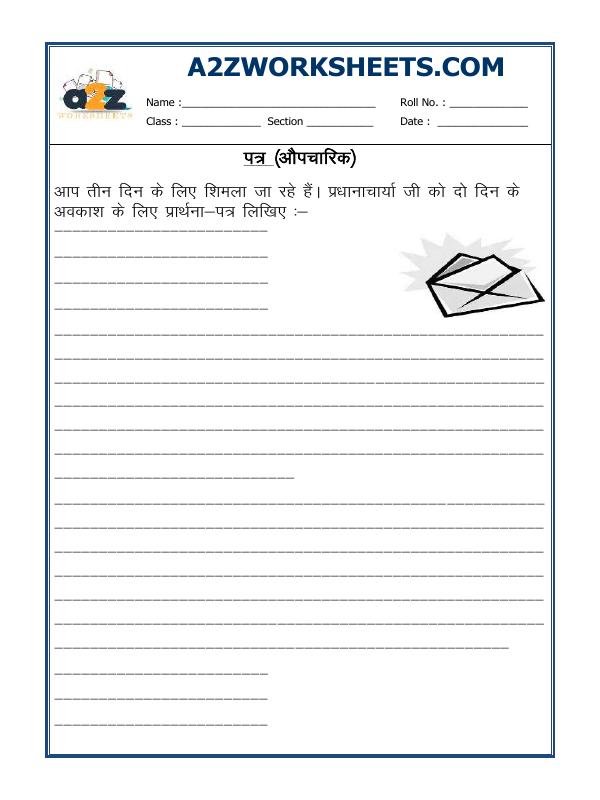 A2ZWORKSHEETS.COM
a2z
WORKSHEETS
Name :______________________________ Roll No. : ____________
Class : ____________ Section __________ Date : ______________
पत्र (औपचारिक)
आप तीन दिन के लिए शिमला जा रहे हैं। प्रधानाचार्या जी को दो दिन के
अवकाश के लिए प्रार्थना–पत्र लिखिए :–